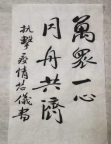 萬眾一心
同舟共濟
抗擊疫情岱儀書